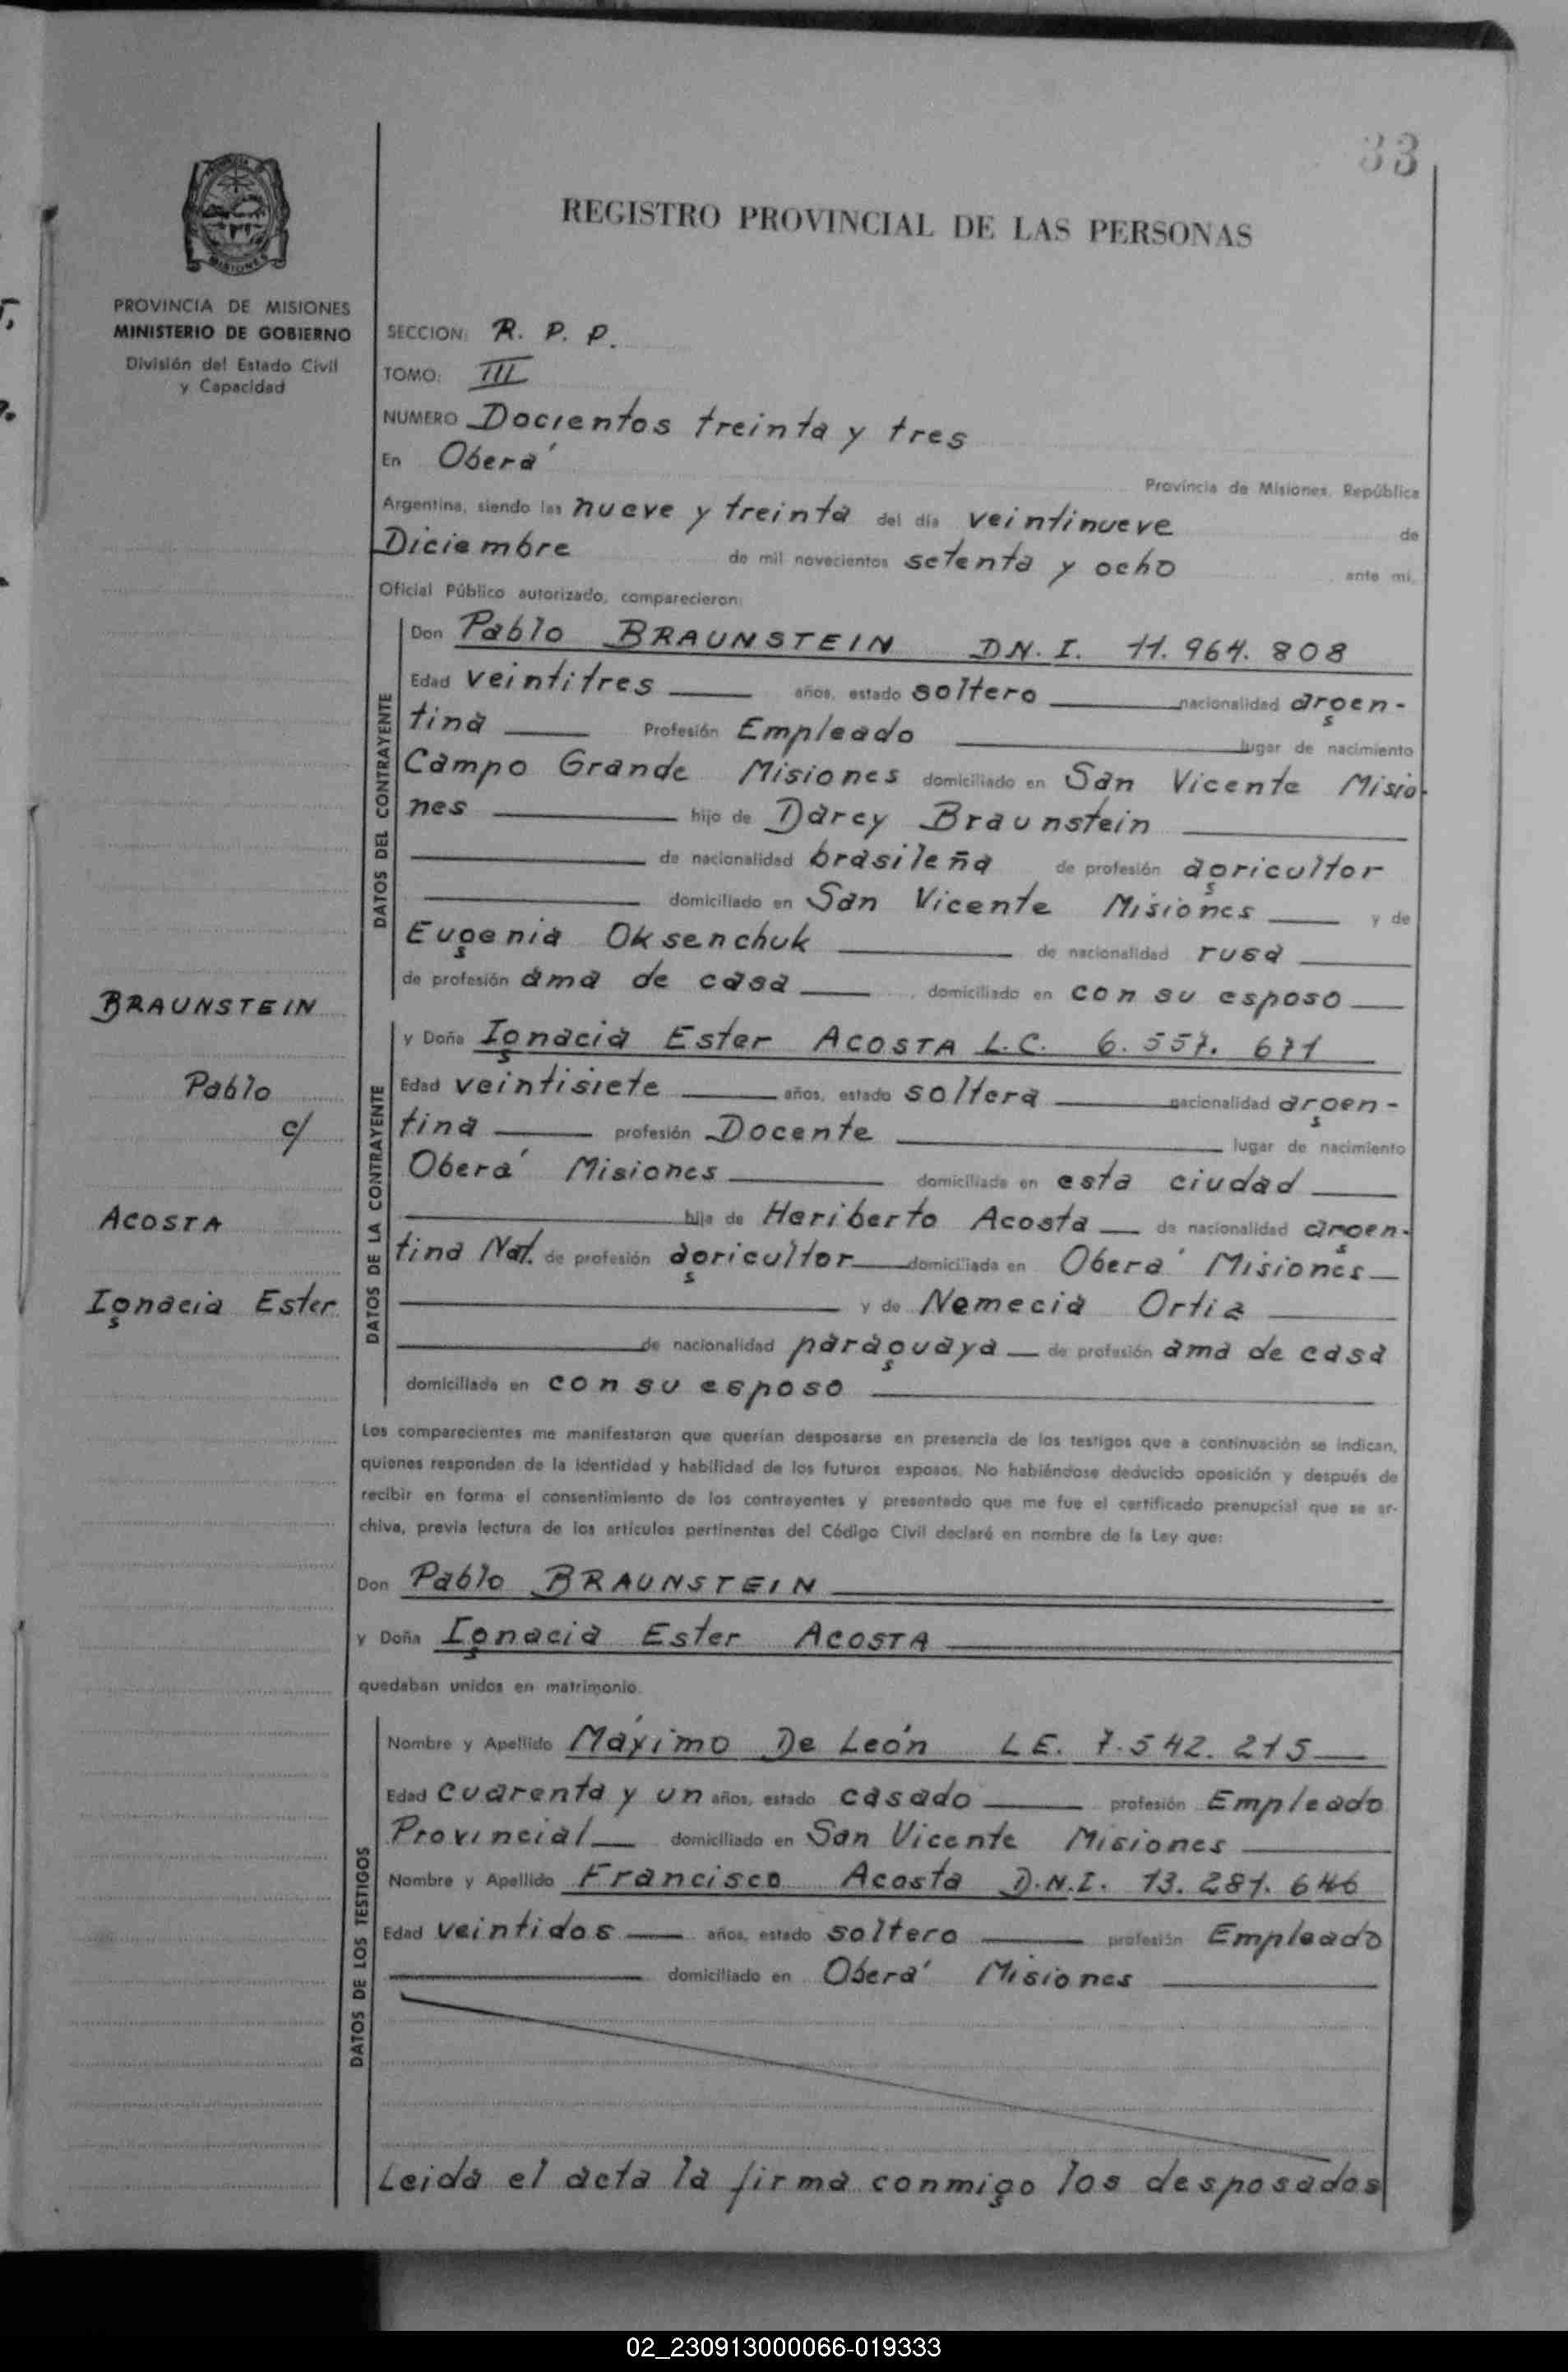 33
REGISTRO PROVINCIAL DE LAS PERSONAS
MISIONES
PROVINCIA DE MISIONES
MINISTERIO DE GOBIERNO
División del Estado Civil
y Capacidad
SECCION: R. P. P.
TOMO: III
NUMERO Docientos treinta y tres
En Oberá
Provincia de Misiones, República
Argentina, siendo las nueve y treinta del día veintinueve de
Diciembre de mil novecientos setenta y ocho ante mí,
Oficial Público autorizado, comparecieron:
DATOS DEL CONTRAYENTE
Don Pablo BRAUNSTEIN DN. I. 11. 964. 808
Edad veintitres años, estado soltero nacionalidad argen-
tina Profesión Empleado lugar de nacimiento
Campo Grande Misiones domiciliado en San Vicente Misio-
nes hijo de Darcy Braunstein
de nacionalidad brasileña de profesión agricultor
domiciliado en San Vicente Misiones y de
Eugenia Oksenchuk de nacionalidad rusa
de profesión ama de casa domiciliado en con su esposo
BRAUNSTEIN
Pablo
c/
ACOSTA
Ignacia Ester
DATOS DE LA CONTRAYENTE
y Doña Ignacia Ester ACOSTA L.C. 6. 557. 671
Edad veintisiete años, estado soltera nacionalidad argen-
tina profesión Docente lugar de nacimiento
Oberá Misiones domiciliada en esta ciudad
hija de Heriberto Acosta de nacionalidad argen-
tina Nat. de profesión agricultor domiciliada en Oberá Misiones
y de Nemecia Ortiz
de nacionalidad paraguaya de profesión ama de casa
domiciliada en con su esposo
Los comparecientes me manifestaron que querían desposarse en presencia de los testigos que a continuación se indican,
quienes responden de la identidad y habilidad de los futuros esposos. No habiéndose deducido oposición y después de
recibir en forma el consentimiento de los contrayentes y presentado que me fue el certificado prenupcial que se ar-
chiva, previa lectura de los artículos pertinentes del Código Civil declaré en nombre de la Ley que:
Don Pablo BRAUNSTEIN
y Doña Ignacia Ester ACOSTA
quedaban unidos en matrimonio.
DATOS DE LOS TESTIGOS
Nombre y Apellido Máximo De León LE. 7.542.215
Edad cuarenta y un años, estado casado profesión Empleado
Provincial domiciliado en San Vicente Misiones
Nombre y Apellido Francisco Acosta D.N.I. 13. 281. 646
Edad veintidos años, estado soltero profesión Empleado
domiciliado en Oberá Misiones
Leida el acta la firma conmigo los desposados
02_230913000066-019333